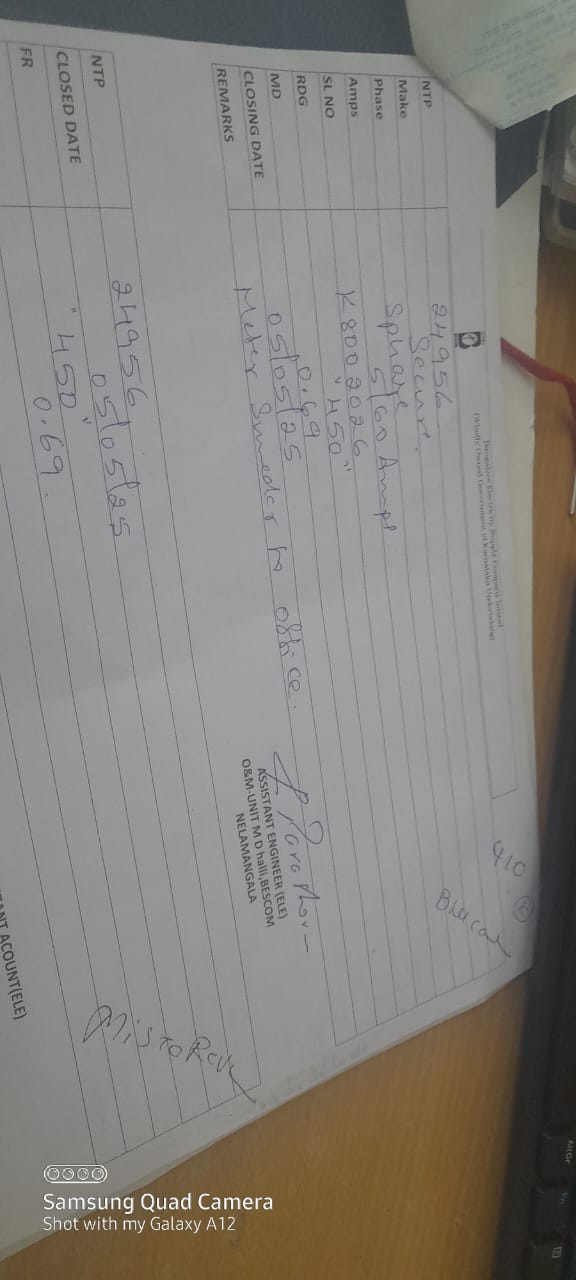 Bangalore Electricity Supply Company limited
(Wholly Owned Government of Karnataka Undertaking)
410
NTP 24956
Make Secure.
Phase
Amps 5/60 Amps
SL NO K8002026
RDG "450"
MD 0.69
CLOSING DATE 05/05/25
REMARKS Meter to office.
ASSISTANT ENGINEER (ELE)
O&M-UNIT M D halli,BESCOM
NELAMANGALA
NTP 24956
CLOSED DATE 05/05/25
FR "450"
0.69.
TANT ACOUNT(ELE)
AltGr
Samsung Quad Camera
Shot with my Galaxy A12